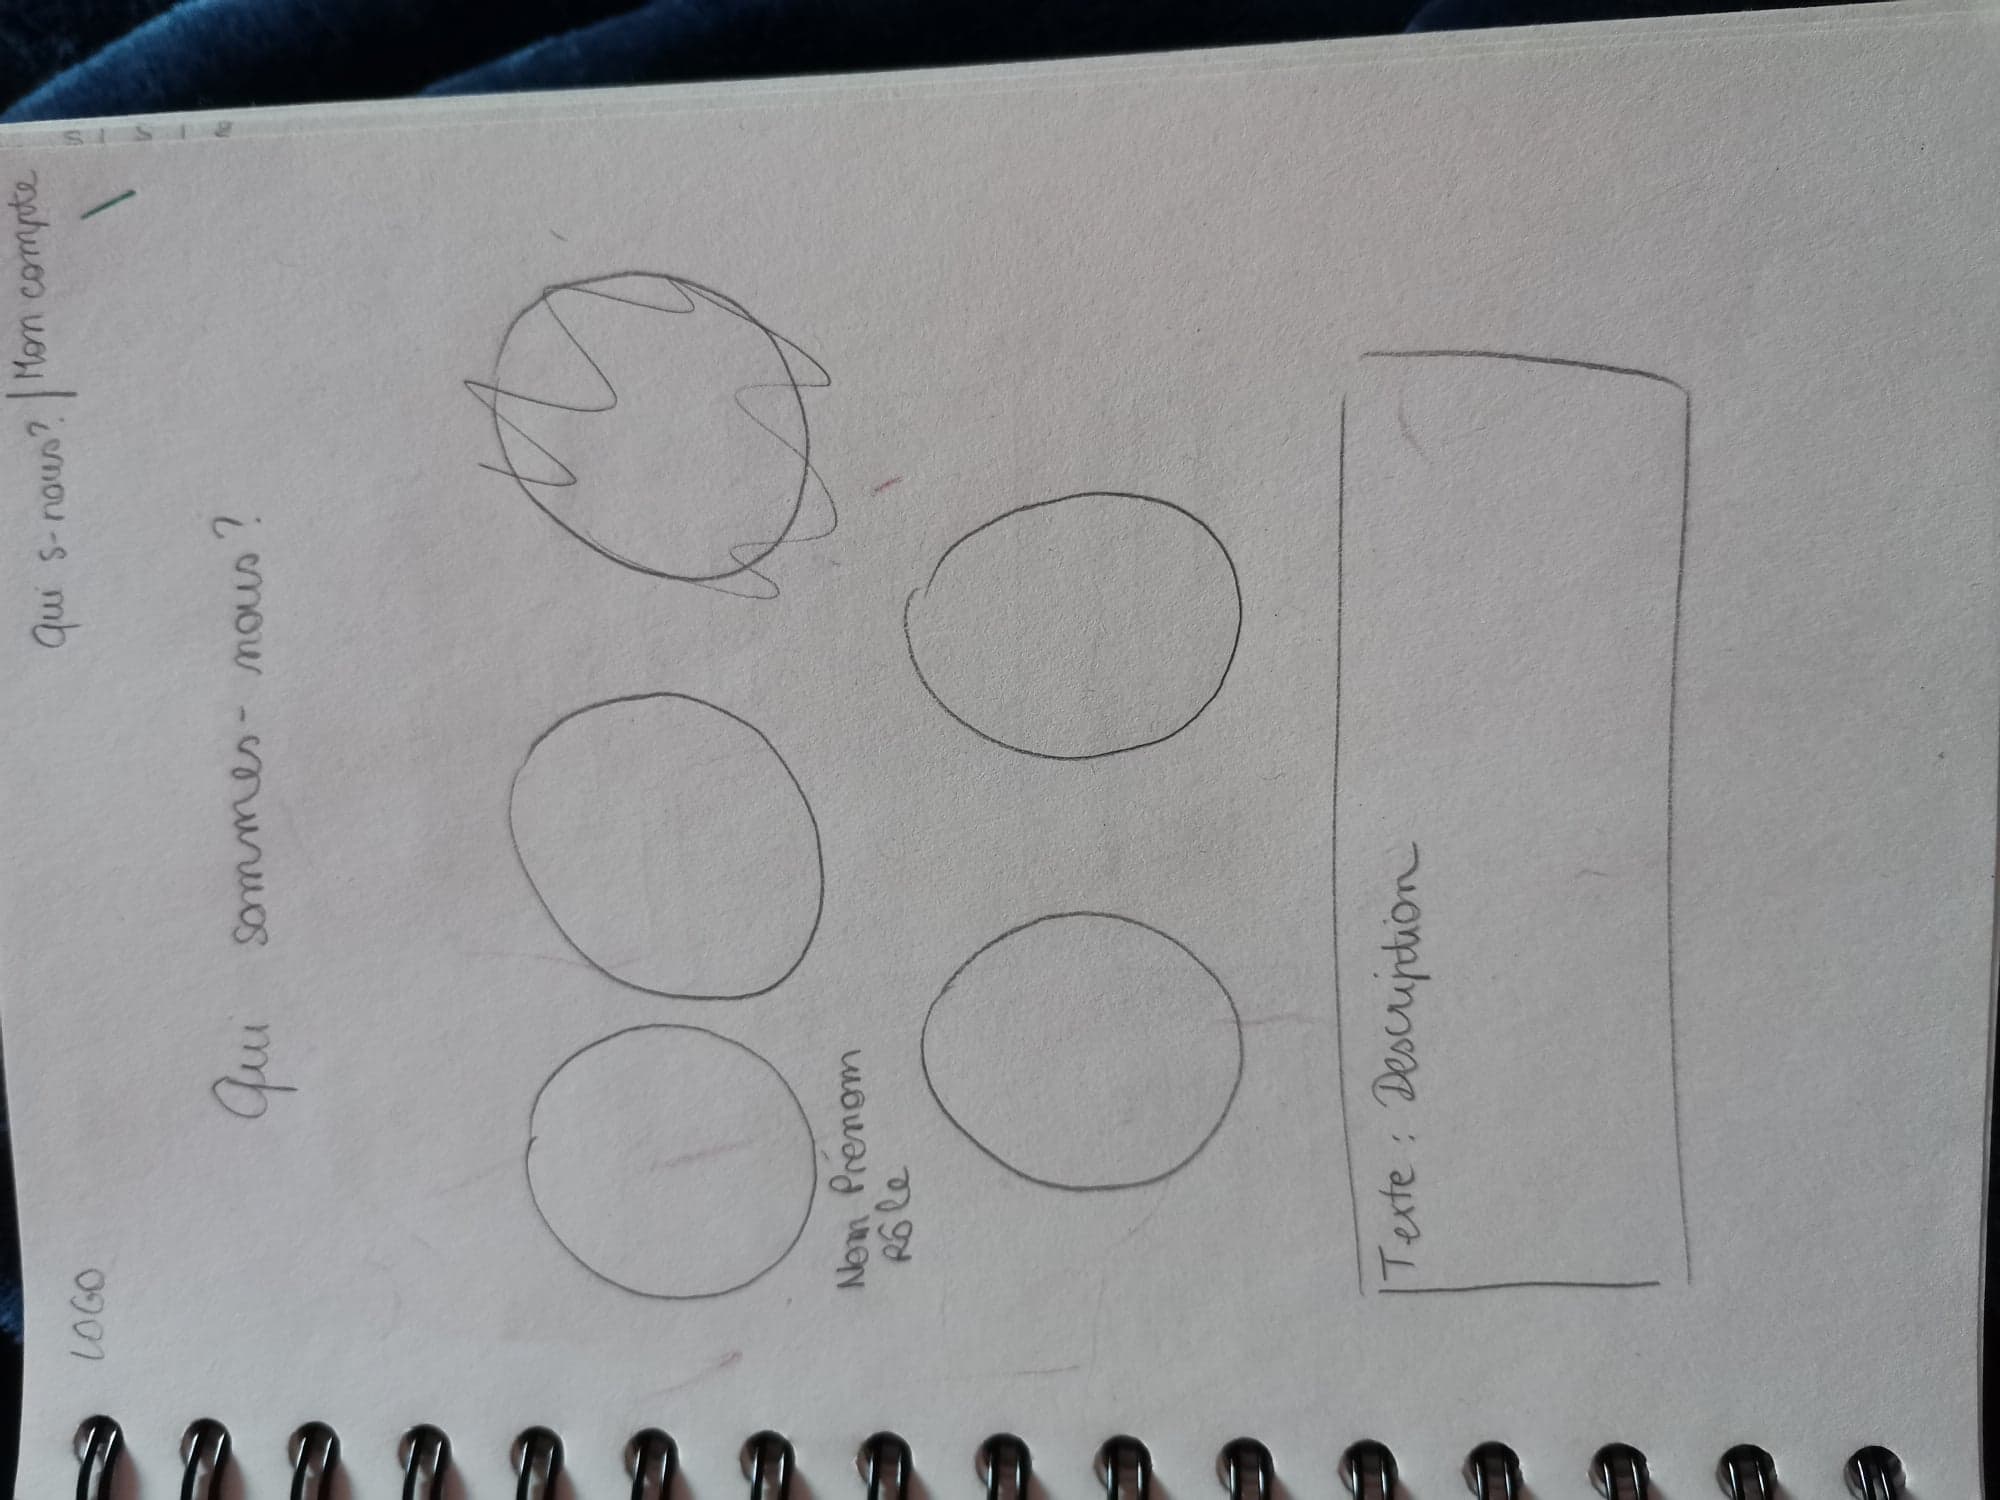 Qui s-nous? | Mon compte
LOGO
Qui sommes-nous?
Nom Prénom
Rôle
Texte : Description